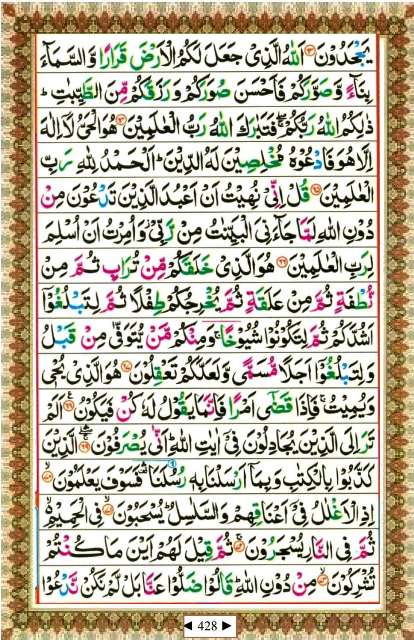 يَجْحَدُوْنَ ۝٦٣ اَللّٰهُ الَّذِىْ جَعَلَ لَكُمُ الْاَرْضَ قَرَارًا وَّالسَّمَآءَ
بِنَآءً وَّصَوَّرَكُمْ فَاَحْسَنَ صُوَرَكُمْ وَرَزَقَكُمْ مِّنَ الطَّيِّبٰتِ ؕ
ذٰلِكُمُ اللّٰهُ رَبُّكُمْ ۖ فَتَبٰرَكَ اللّٰهُ رَبُّ الْعٰلَمِيْنَ ۝٦٤ هُوَ الْحَىُّ لَاۤ اِلٰهَ
اِلَّا هُوَ فَادْعُوْهُ مُخْلِصِيْنَ لَهُ الدِّيْنَ ؕ اَلْحَمْدُ لِلّٰهِ رَبِّ
الْعٰلَمِيْنَ ۝٦٥ قُلْ اِنِّىْ نُهِيْتُ اَنْ اَعْبُدَ الَّذِيْنَ تَدْعُوْنَ مِنْ
دُوْنِ اللّٰهِ لَمَّا جَآءَنِىَ الْبَيِّنٰتُ مِنْ رَّبِّىْ وَاُمِرْتُ اَنْ اُسْلِمَ
لِرَبِّ الْعٰلَمِيْنَ ۝٦٦ هُوَ الَّذِىْ خَلَقَكُمْ مِّنْ تُرَابٍ ثُمَّ مِنْ
نُّطْفَةٍ ثُمَّ مِنْ عَلَقَةٍ ثُمَّ يُخْرِجُكُمْ طِفْلًا ثُمَّ لِتَبْلُغُوْۤا
اَشُدَّكُمْ ثُمَّ لِتَكُوْنُوْا شُيُوْخًا ۚ وَمِنْكُمْ مَّنْ يُّتَوَفّٰى مِنْ قَبْلُ
وَلِتَبْلُغُوْۤا اَجَلًا مُّسَمًّى وَّلَعَلَّكُمْ تَعْقِلُوْنَ ۝٦٧ هُوَ الَّذِىْ يُحْىٖ
وَيُمِيْتُ ۚ فَاِذَا قَضٰٓى اَمْرًا فَاِنَّمَا يَقُوْلُ لَهٗ كُنْ فَيَكُوْنُ ۝٦٨ اَلَمْ
تَرَ اِلَى الَّذِيْنَ يُجَادِلُوْنَ فِىْۤ اٰيٰتِ اللّٰهِ ؕ اَنّٰى يُصْرَفُوْنَ ۝٦٩ الَّذِيْنَ
كَذَّبُوْا بِالْكِتٰبِ وَبِمَاۤ اَرْسَلْنَا بِهٖ رُسُلَنَا ۛ فَسَوْفَ يَعْلَمُوْنَ ۝٧٠
اِذِ الْاَغْلٰلُ فِىْۤ اَعْنَاقِهِمْ وَالسَّلٰسِلُ ؕ يُسْحَبُوْنَ ۝٧١ فِى الْحَمِيْمِ ۙ
ثُمَّ فِى النَّارِ يُسْجَرُوْنَ ۝٧٢ ثُمَّ قِيْلَ لَهُمْ اَيْنَ مَا كُنْتُمْ
تُشْرِكُوْنَ ۝٧٣ مِنْ دُوْنِ اللّٰهِ ؕ قَالُوْا ضَلُّوْا عَنَّا بَلْ لَّمْ نَكُنْ نَّدْعُوْا
◄ 428 ►